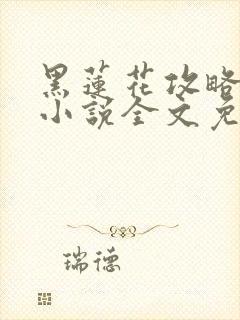 黑蓮花攻略
小說全文免
瑞德